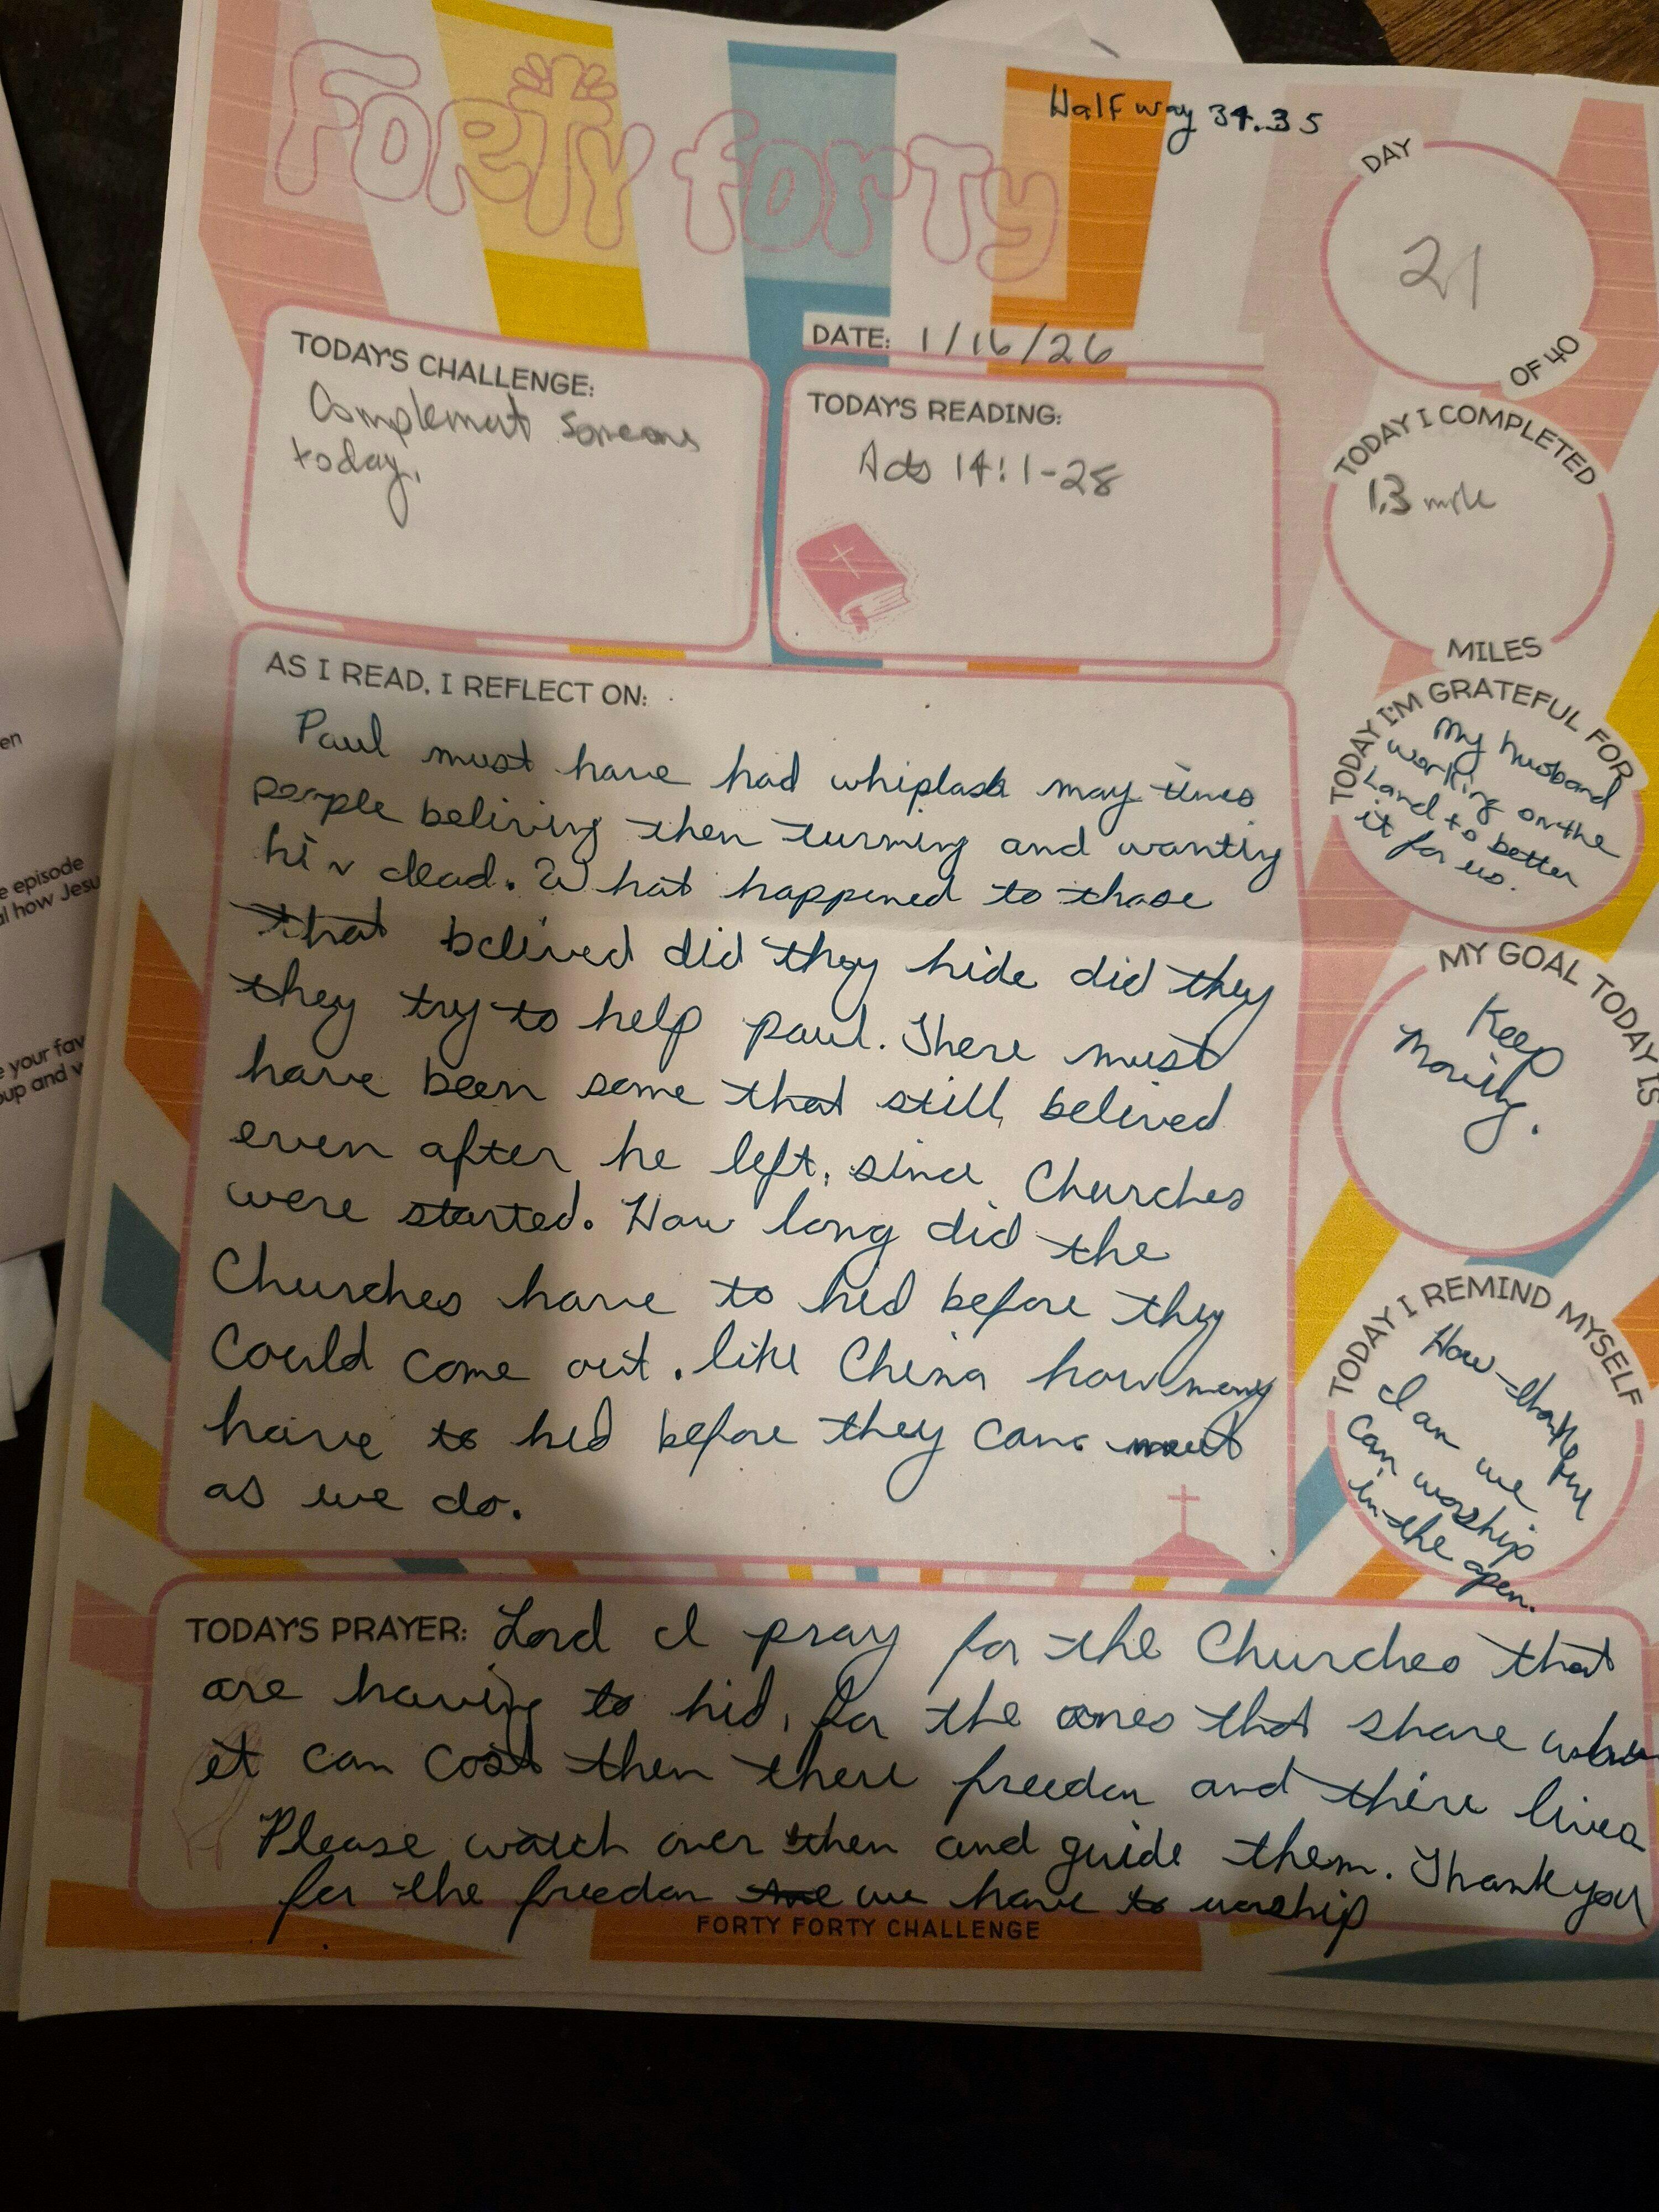 Forty forty
Half way 34.35
DAY
21
OF 40
DATE: 1/16/26
TODAY'S CHALLENGE:
Complement Someone
today.
TODAY'S READING:
Acts 14:1-28
TODAY I COMPLETED
1.3 mile
MILES
AS I READ, I REFLECT ON:
Paul must have had whiplash may times
people beliving then turning and wanting
him dead. What happened to those
that belived did they hide did they
they try to help paul. There must
have been some that still belived
even after he left, since Churches
were started. How long did the
Churches have to hid before they
Could come out. like China how many
have to hid before they can meet
as we do.
TODAY I'M GRATEFUL FOR
my husband
working on the
Land to better
it for us.
MY GOAL TODAY IS
Keep
moving.
TODAY I REMIND MYSELF
How thankful
I am we
can worship
in the open.
TODAY'S PRAYER: Lord I pray for the Churches that
are having to hid, for the ones that share when
it can cost them there freedom and there lives
Please watch over them and guide them. Thank you
for the freedom we have to worship
FORTY FORTY CHALLENGE
en
e episode
al how Jesu
e your fav
oup and v